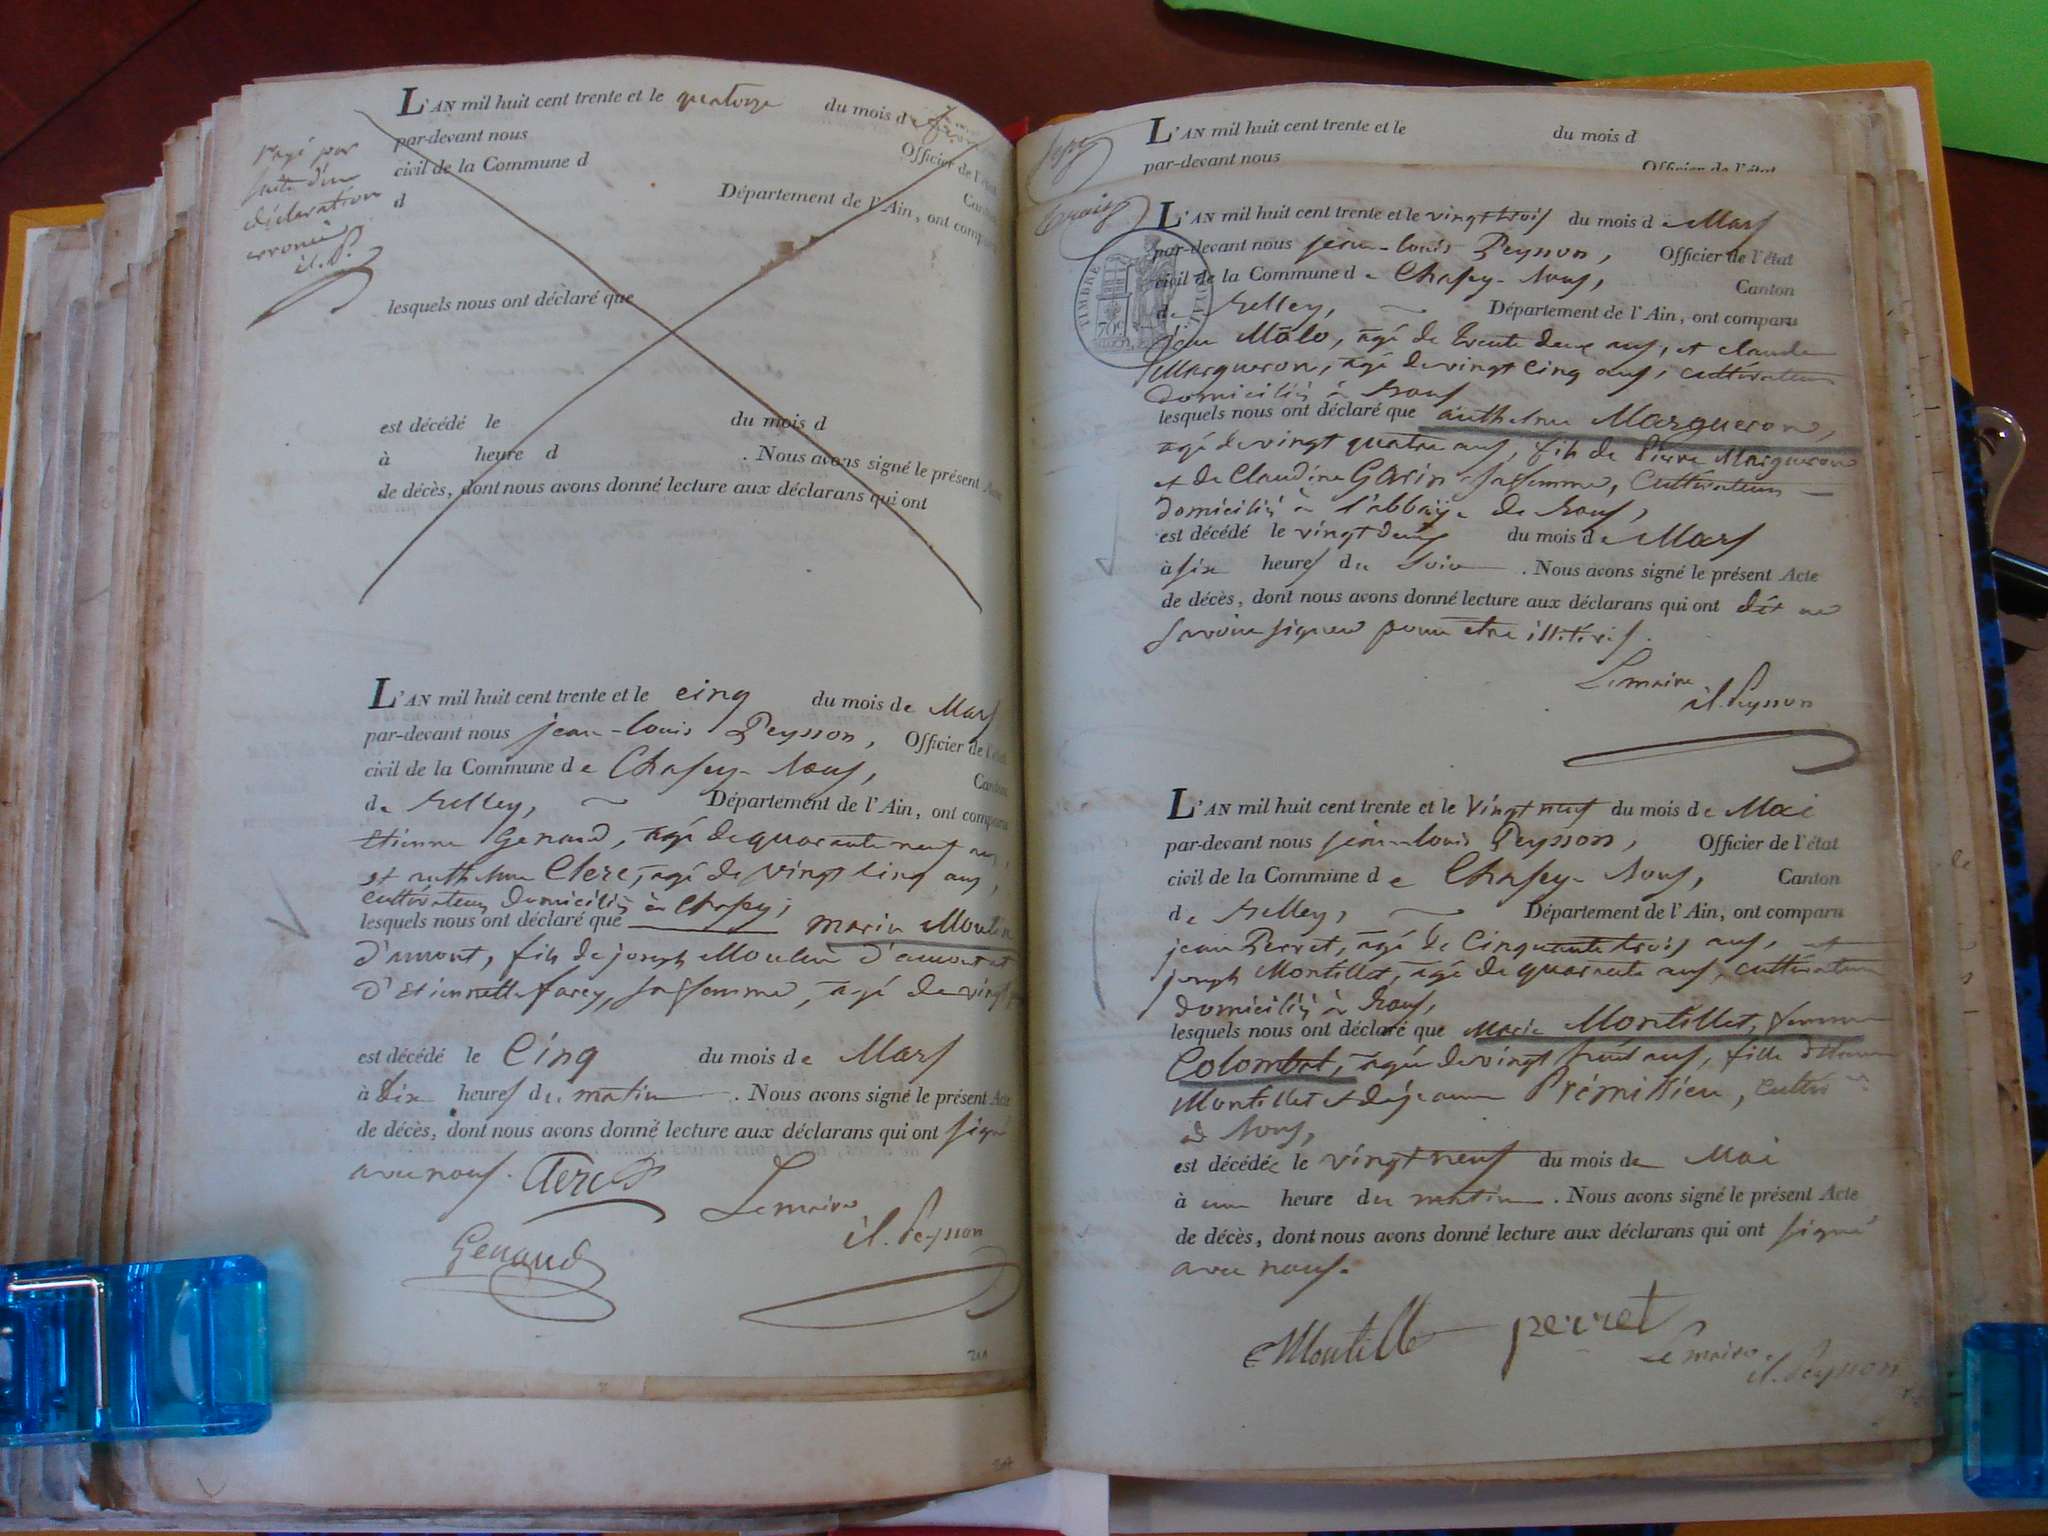 L'AN mil huit cent trente et le quatorze du mois de
par-devant nous Officier de l'état
civil de la Commune d Canton
d Département de l'Ain, ont comparu
rayé par
suite d'une
déclaration
erronée
j.l. P.
lesquels nous ont déclaré que
est décédé le du mois d
à heure d . Nous avons signé le présent Acte
de décès, dont nous avons donné lecture aux déclarans qui ont
L'AN mil huit cent trente et le cinq du mois de Mars
par-devant nous jean-louis Peysson, Officier de l'état
civil de la Commune de Chasey-Bons, Canton
de Belley, Département de l'Ain, ont comparu
Etienne Genaud, agé de quarante neuf ans,
et anthelme Clerc, agé de vingt cinq ans,
cultivateurs domiciliés à Chasey,
lesquels nous ont déclaré que marin Moulin
d'amont, fils de joseph Moulin d'amont et
d'Etiennette farcy, sa femme, agé de vingt
est décédé le Cinq du mois de Mars
à dix heures du matin . Nous avons signé le présent Acte
de décès, dont nous avons donné lecture aux déclarans qui ont signé
avec nous. Clerc
Le maire
Genaud j.l. Peysson
211
L'AN mil huit cent trente et le du mois d
par-devant nous
Officier de l'état
L'AN mil huit cent trente et le vingt trois du mois de Mars
par-devant nous jean-louis Peysson, Officier de l'état
civil de la Commune de Chasey-Bons, Canton
de Belley, Département de l'Ain, ont comparu
TIMBRE ROYAL
70c
jean Molo, agé de trente deux ans, et claude
Marqueron, agé de vingt cinq ans, cultivateurs
domiciliés à Bons
lesquels nous ont déclaré que anthelme Marqueron,
agé de vingt quatre ans, fils de Pierre Marqueron
et de Claudine Garin sa femme, Cultivateurs
domiciliés à l'abbaÿe de Bons,
est décédé le vingt deux du mois de Mars
à six heures du soir . Nous avons signé le présent Acte
de décès, dont nous avons donné lecture aux déclarans qui ont dit ne
savoir signer pour etre illitérés.
Le maire
j.l. Peysson
L'AN mil huit cent trente et le Vingt neuf du mois de Mai
par-devant nous jean-louis Peysson, Officier de l'état
civil de la Commune de Chasey-Bons, Canton
de Belley, Département de l'Ain, ont comparu
jean Perret, agé de Cinquante trois ans, et
joseph Montillet, agé de quarante ans, cultivateurs
domiciliés à Bons,
lesquels nous ont déclaré que Marie Montillet, femme
Colombet, agée de vingt huit ans, fille d'
Montillet et de jeanne Prémillieu,
à Bons,
est décédée le vingt neuf du mois de Mai
à une heure du matin . Nous avons signé le présent Acte
de décès, dont nous avons donné lecture aux déclarans qui ont signé
avec nous.
Montillet perret
Le maire
j.l. Peysson